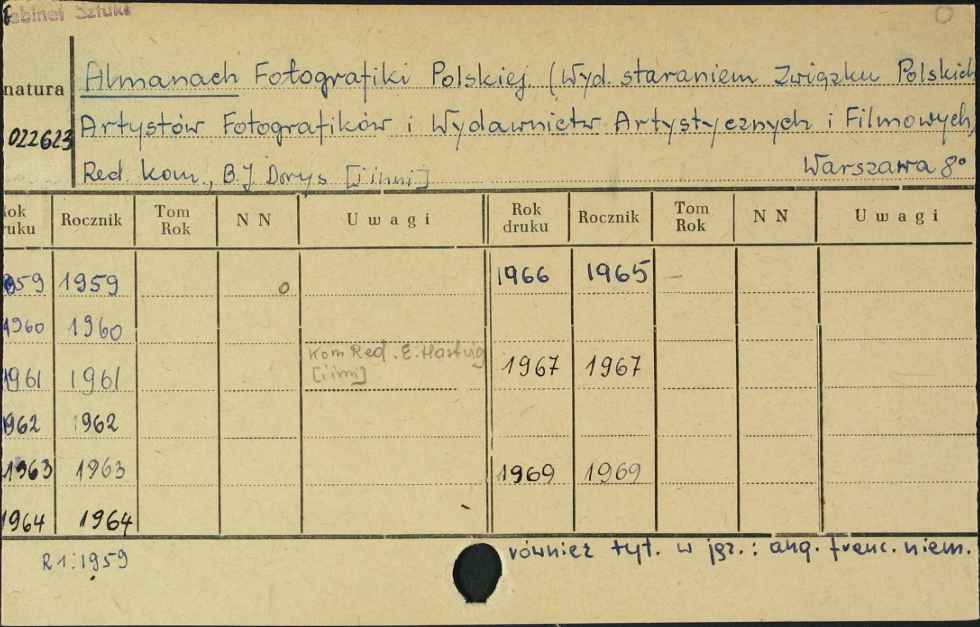 Gabinet Sztuki
natura
022623
Almanach Fotografiki Polskiej (Wyd. staraniem Związku Polskich
Artystów Fotografików i Wydawnictw Artystycznych i Filmowych,
Red. Kom., B.J Dorys [i inni] Warszawa 8°
Rok druku Rocznik Tom Rok N N U w a g i Rok druku Rocznik Tom Rok N N U w a g i
1959 1959 o 1966 1965 —
1960 1960
Kom Red. E. Hartwig
[i inni]
1961 1961 1967 1967
1962 1962
1963 1963 1969 1969
1964 1964
R 1:1959
również tyt. w jęz.: ang. franc. niem.